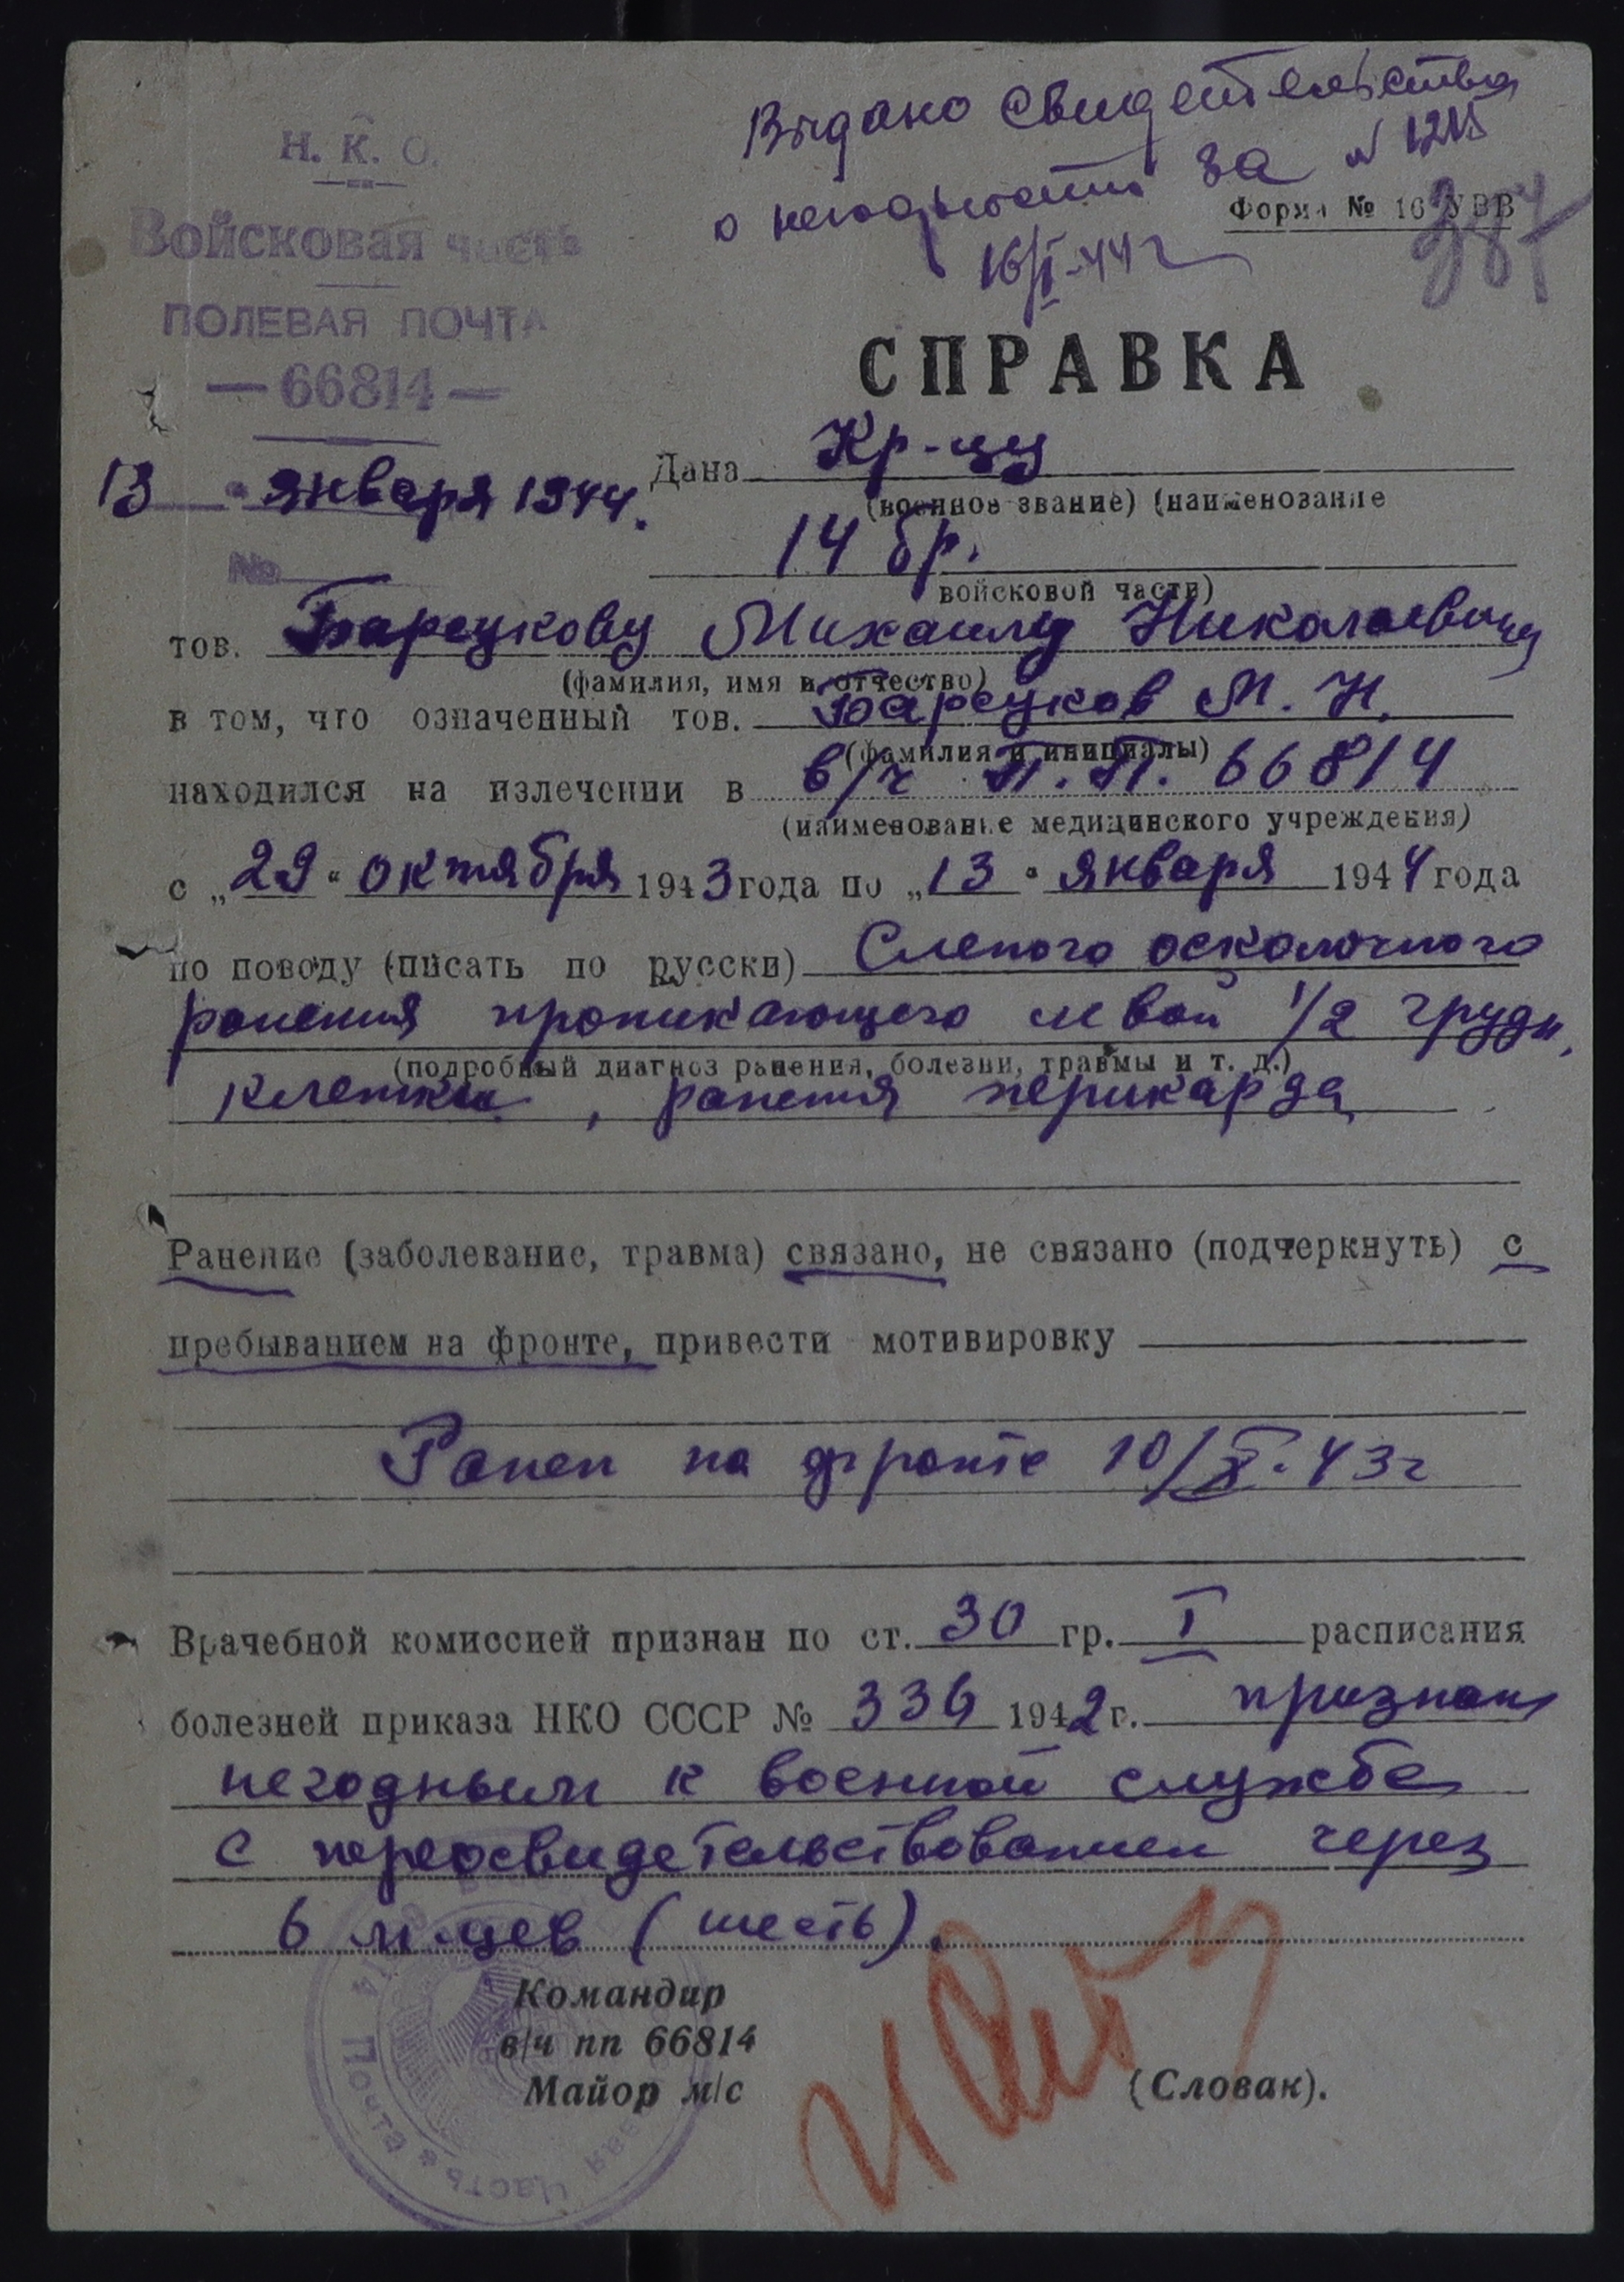 Выдано свидетельство
о негодности за № 1215
16/I-44 г
Н. К. О.
Войсковая часть
ПОЛЕВАЯ ПОЧТА
— 66814 —
Форма № 16 УВВ
387
СПРАВКА
13 " января 1944.
№
Дана Кр-цу
(военное звание) (наименование
14 бр.
войсковой части)
тов. Барсукову Михаилу Николаевичу
(фамилия, имя и отчество)
в том, что означенный тов. Барсуков М. Н.
(фамилия и инициалы)
находился на излечении в в/ч П.П. 66814
(наименование медицинского учреждения)
с „29" октября 1943 года по „13" января 1944 года
по поводу (писать по русски) Слепого осколочного
ранения проникающего левой 1/2 грудн.
(подробный диагноз ранения, болезни, травмы и т. д.)
клетки, ранения перикарда
Ранение (заболевание, травма) связано, не связано (подчеркнуть) с
пребыванием на фронте, привести мотивировку
Ранен на фронте 10/X-43 г
Врачебной комиссией признан по ст. 30 гр. I расписания
болезней приказа НКО СССР № 336 1942 г. признан
негодным к военной службе
с переосвидетельствованием через
6 м-цев (шесть).
Командир
в/ч пп 66814
Майор м/с
(Словак).